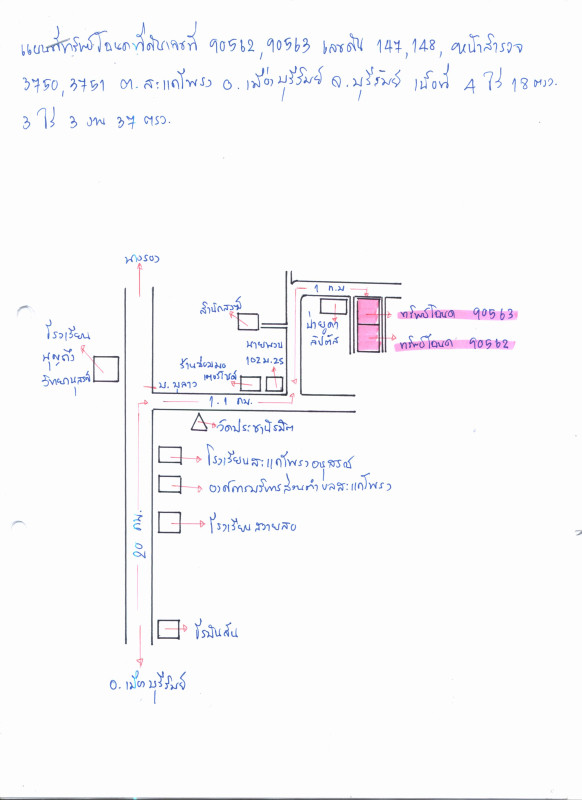 แผนที่ทรัพย์โฉนดที่ดินเลขที่ 90562, 90563 เลขดิน 147, 148, หน้าสำรวจ
3750, 3751 ต. สะแกโพรง อ. เมืองบุรีรัมย์ จ. บุรีรัมย์ เนื้อที่ 4 ไร่ 18 ตรว.
3 ไร่ 3 งาน 37 ตรว.
นางรอง
1 ก.ม
สำนักสงฆ์
ป่ายูคา
ลิปตัส
ทรัพย์โฉนด 90563
ทรัพย์โฉนด 90562
โรงเรียน
วิทยานุสรณ์
นายพวน
102 ม.25
ร้านซ่อมมอ
เตอร์ไซค์
บ. บุลาว
1.1 กม.
วัดประชานิรมิต
โรงเรียนสะแกโพรงอนุสรณ์
องค์การบริหารส่วนตำบลสะแกโพรง
โรงเรียนสวายสอ
20 กม.
โรมันสัน
อ. เมืองบุรีรัมย์